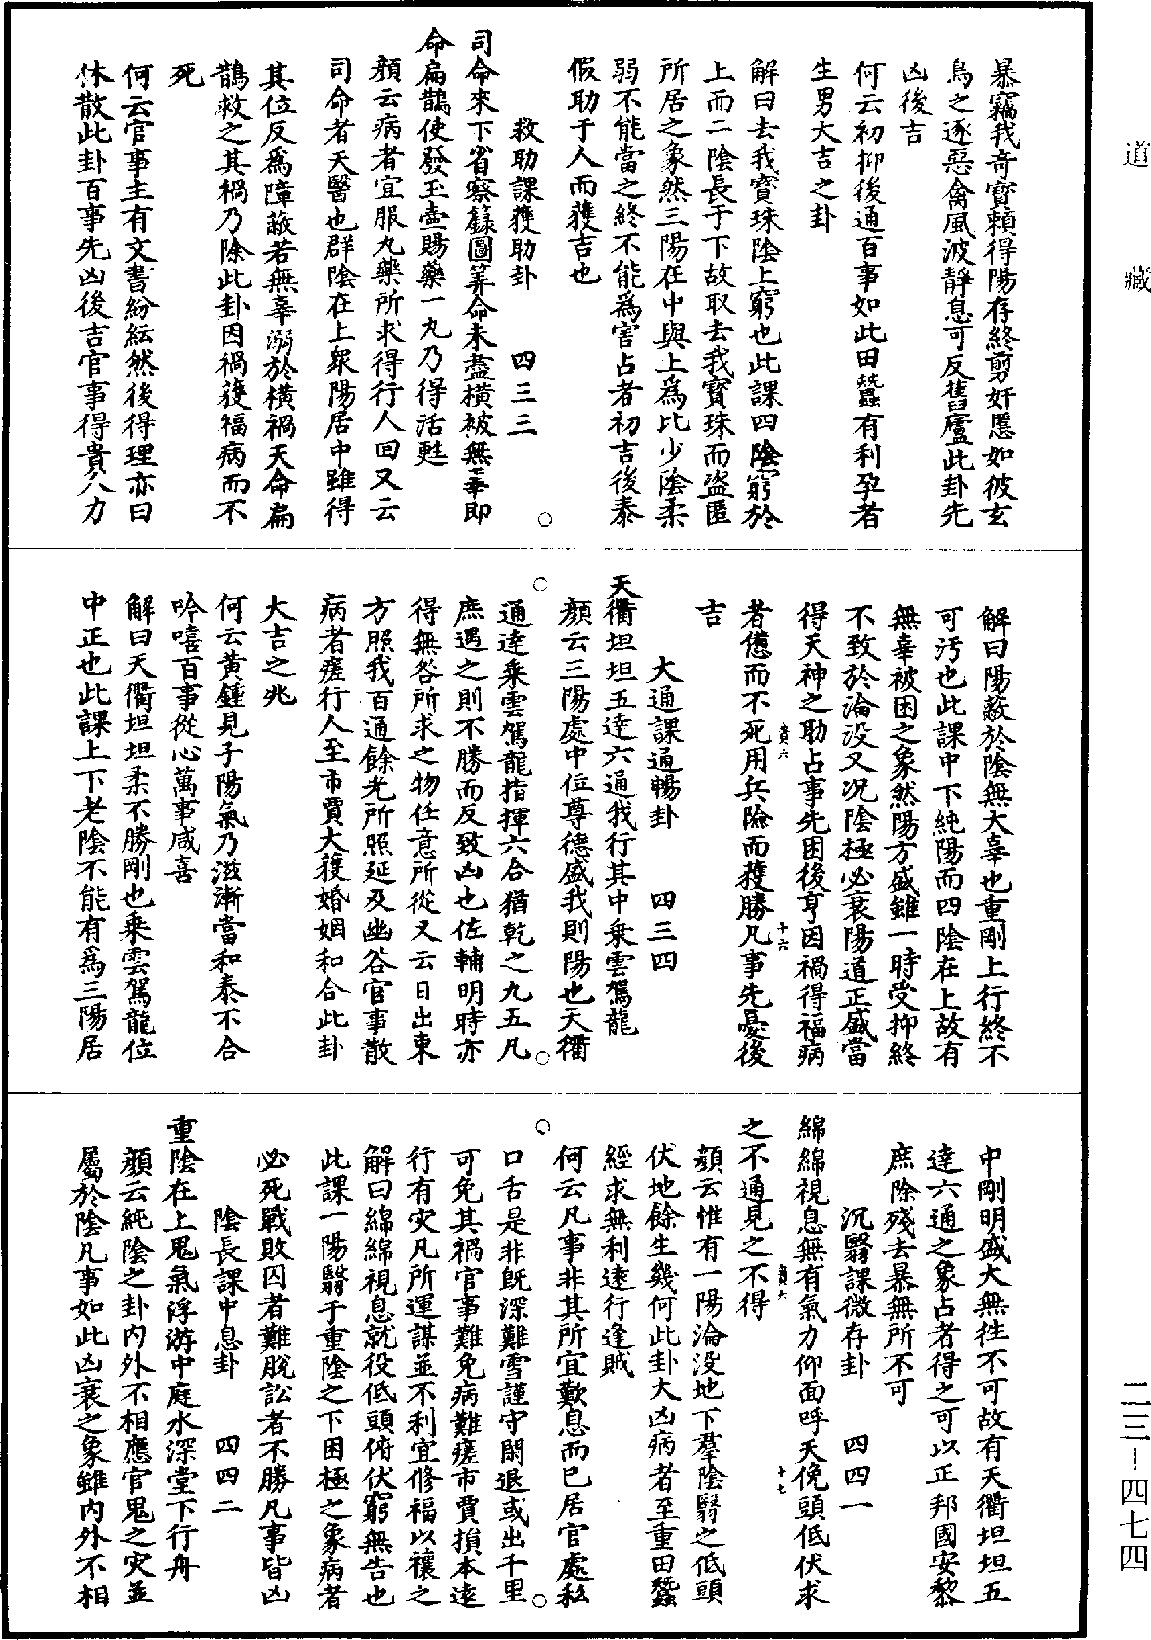 道藏
暴竊我奇寶賴得陽存終剪奸慝如彼玄
鳥之逐惡禽風波靜息可反舊廬此卦先
凶後吉
何云初抑後通百事如此田蠶有利孕者
生男大吉之卦
解曰去我寶珠陰上窮也此課四陰窮於
上而二陰長于下故取去我寶珠而盜匿
所居之象然三陽在中與上爲比少陰柔
弱不能當之終不能爲害占者初吉後泰
假助于人而獲吉也
救助課獲助卦 四三三
司命來下省察籙圖筭命未盡橫被無辜即
命扁鵲使發玉壺賜藥一丸乃得活甦
顏云病者宜服丸藥所求得行人回又云
司命者天醫也群陰在上衆陽居中雖得
其位反爲障蔽若無辜溺於橫禍天命扁
鵲救之其禍乃除此卦因禍獲福病而不
死
何云官事主有文書紛紜然後得理亦曰
休散此卦百事先凶後吉官事得貴人力
解曰陽蔽於陰無大辜也重剛上行終不
可污也此課中下純陽而四陰在上故有
無辜被困之象然陽方盛雖一時受抑終
不致於淪没又况陰極必衰陽道正盛當
得天神之助占事先困後亨因禍得福病
者憊而不死用兵險而獲勝凡事先憂後
吉
大通課通暢卦 四三四
天衢坦坦五達六通我行其中乗雲駕龍
顏云三陽處中位尊德盛我則陽也天衢
通達乗雲駕龍指揮六合猶乾之九五凡
庶遇之則不勝而反致凶也佐輔明時亦
得無咎所求之物任意所從又云日出東
方照我百通餘光所照延及幽谷官事散
病者瘥行人至市賈大獲婚姻和合此卦
大吉之兆
何云黄鍾見子陽氣乃滋漸當和泰不合
吟嘻百事從心萬事咸喜
解曰天衢坦坦柔不勝剛也乗雲駕龍位
中正也此課上下老陰不能有爲三陽居
中剛明盛大無往不可故有天衢坦坦五
達六通之象占者得之可以正邦國安黎
庶除殘去暴無所不可
沉翳課微存卦 四四一
綿綿視息無有氣力仰面呼天俛頭低伏求
之不通見之不得
顏云惟有一陽淪没地下羣陰翳之低頭
伏地餘生幾何此卦大凶病者至重田蠶
經求無利逺行逢賊
何云凡事非其所宜歎息而已居官處私
口舌是非旣深難雪謹守閑退或出千里
可免其禍官事難免病難瘥市賈損本逺
行有灾凡所運謀並不利宜修福以禳之
解曰綿綿視息就役低頭俯伏窮無告也
此課一陽翳于重陰之下困極之象病者
必死戰敗囚者難脫訟者不勝凡事皆凶
陰長課中息卦 四四二
重陰在上鬼氣浮游中庭水深堂下行舟
顏云純陰之卦内外不相應官鬼之灾並
屬於陰凡事如此凶衰之象雖内外不相
二三—四七四